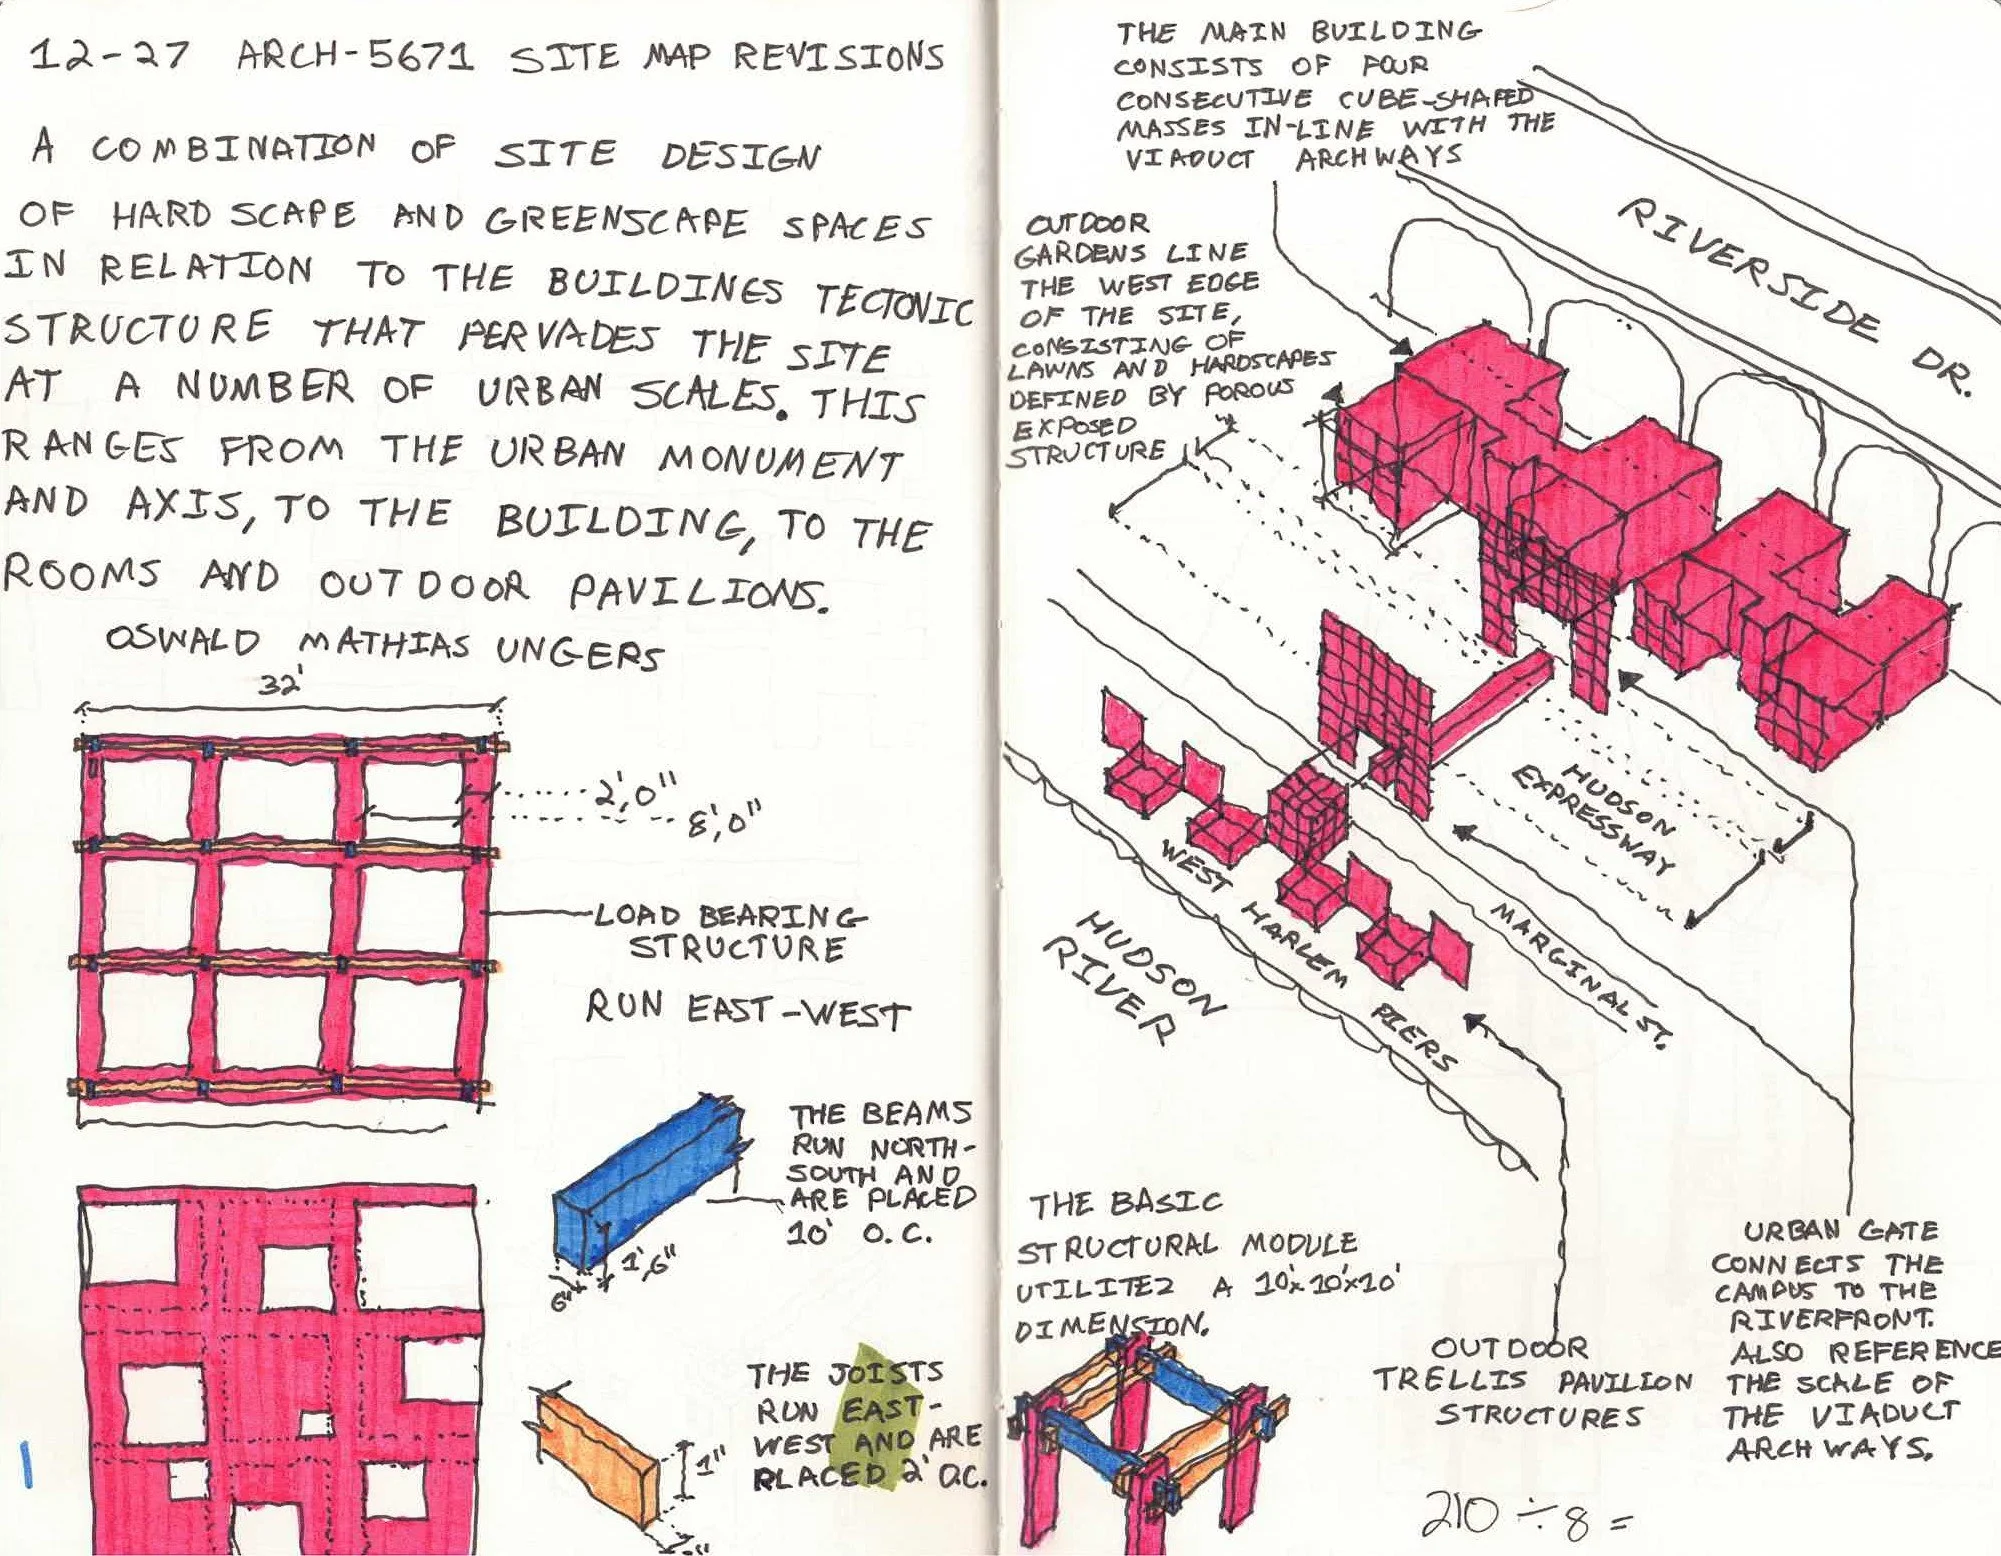 12-27 ARCH-5671 SITE MAP REVISIONS
A COMBINATION OF SITE DESIGN
OF HARDSCAPE AND GREENSCAPE SPACES
IN RELATION TO THE BUILDINGS TECTONIC
STRUCTURE THAT PERVADES THE SITE
AT A NUMBER OF URBAN SCALES. THIS
RANGES FROM THE URBAN MONUMENT
AND AXIS, TO THE BUILDING, TO THE
ROOMS AND OUTDOOR PAVILIONS.
OSWALD MATHIAS UNGERS
32'
2',0"
8',0"
LOAD BEARING
STRUCTURE
RUN EAST-WEST
THE BEAMS
RUN NORTH-
SOUTH AND
ARE PLACED
10' O.C.
1',6"
6"
THE JOISTS
RUN EAST-
WEST AND ARE
PLACED 2' O.C.
1"
THE MAIN BUILDING
CONSISTS OF FOUR
CONSECUTIVE CUBE-SHAPED
MASSES IN-LINE WITH THE
VIADUCT ARCHWAYS
OUTDOOR
GARDENS LINE
THE WEST EDGE
OF THE SITE,
CONSISTING OF
LAWNS AND HARDSCAPES
DEFINED BY POROUS
EXPOSED
STRUCTURE
RIVERSIDE DR.
HUDSON
EXPRESSWAY
MARGINAL ST.
WEST HARLEM PIERS
HUDSON
RIVER
THE BASIC
STRUCTURAL MODULE
UTILITEZ A 10'x10'x10'
DIMENSION.
OUTDOOR
TRELLIS PAVILION
STRUCTURES
URBAN GATE
CONNECTS THE
CAMPUS TO THE
RIVERFRONT.
ALSO REFERENCE
THE SCALE OF
THE VIADUCT
ARCHWAYS.
210 ÷ 8 =